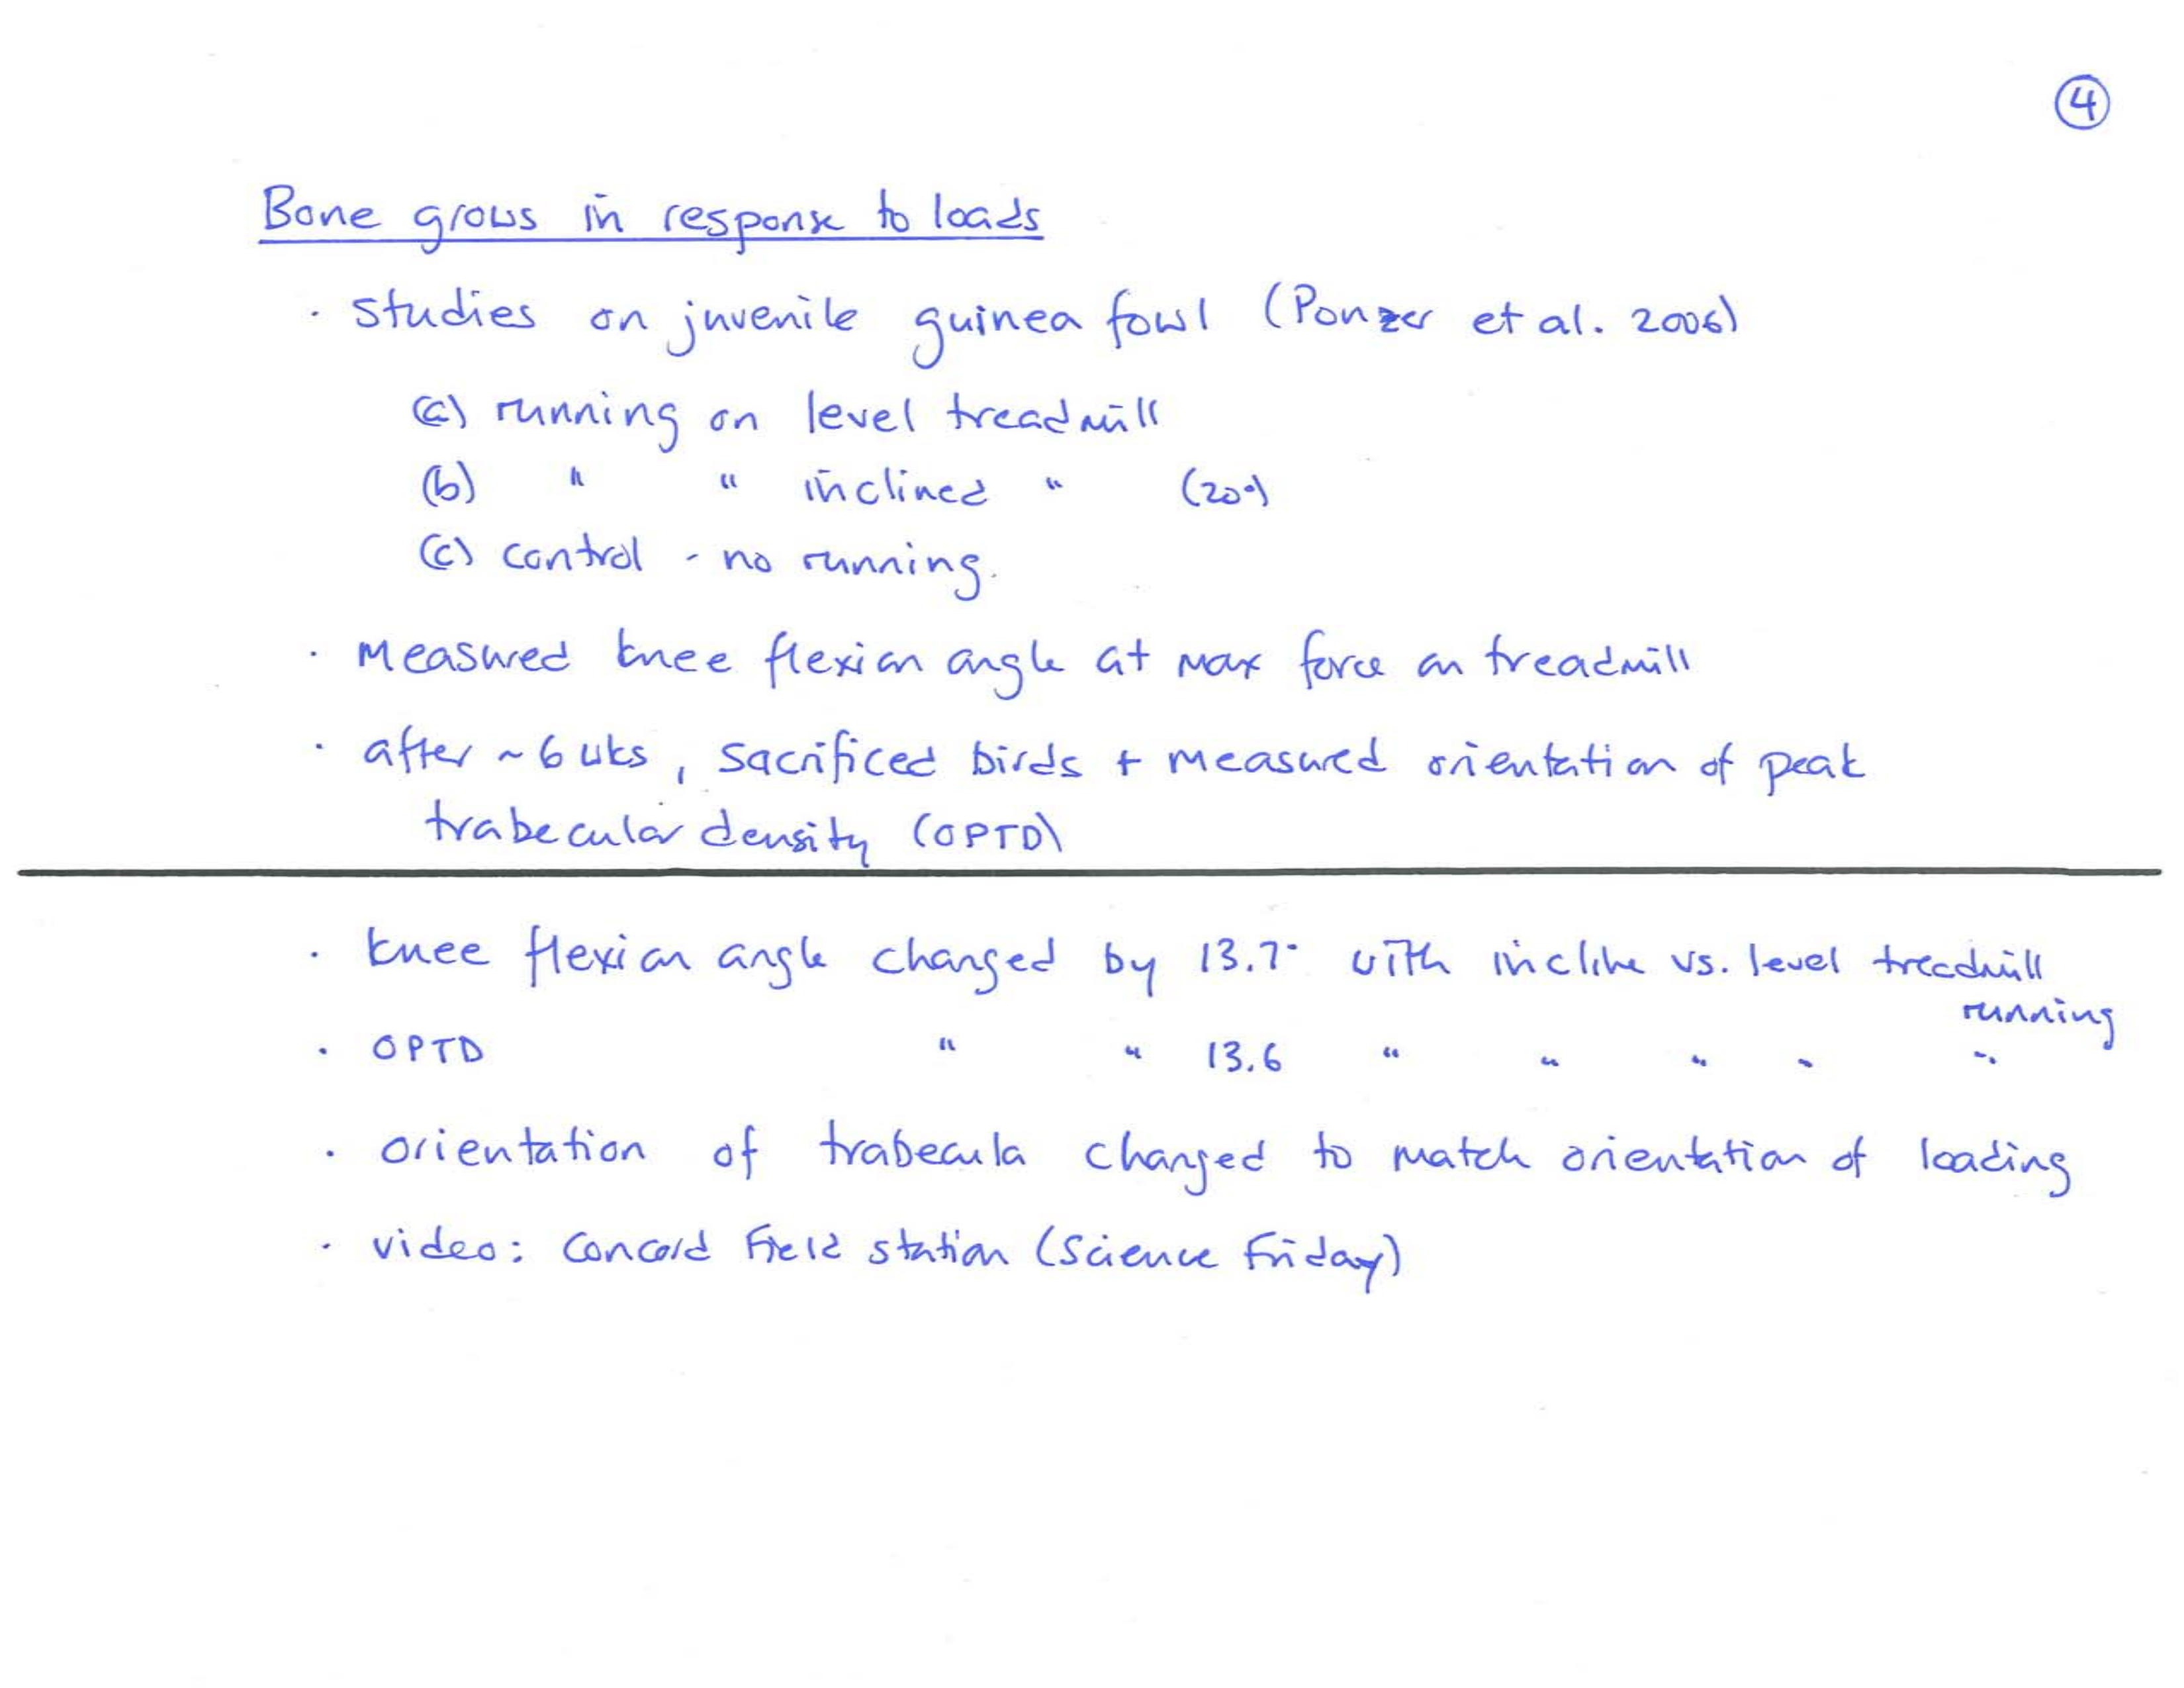 4
Bone grows in response to loads
· studies on juvenile guinea fowl (Ponzer et al. 2006)
(a) running on level treadmill
(b) " " inclined " (20°)
(c) control - no running.
· measured knee flexion angle at max force on treadmill
· after ~6 wks, sacrificed birds + measured orientation of peak
trabecular density (OPTD)
· knee flexion angle changed by 13.7° with incline vs. level treadmill
running
· OPTD " " 13.6 " " " " "
· orientation of trabecula changed to match orientation of loading
· video: Concord Field Station (Science Friday)